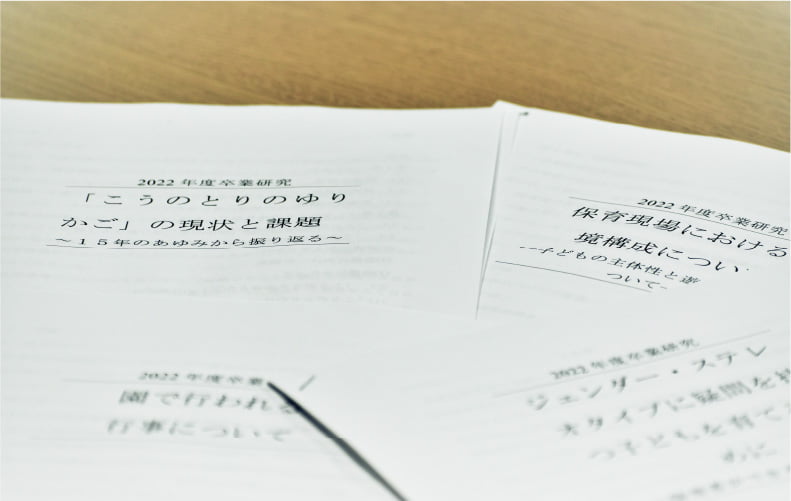 2022 年度卒業研究
「こうのとりのゆり
かご」の現状と課題
～１５年のあゆみから振り返る～
2022 年度卒業研究
保育現場における
境構成につい
--子どもの主体性と遊
ついて-
2022 年度卒業
園で行われる
行事について
2022 年度卒業研究
ジェンダー・ステレ
オタイプに疑問を
つ子どもを育て
めに